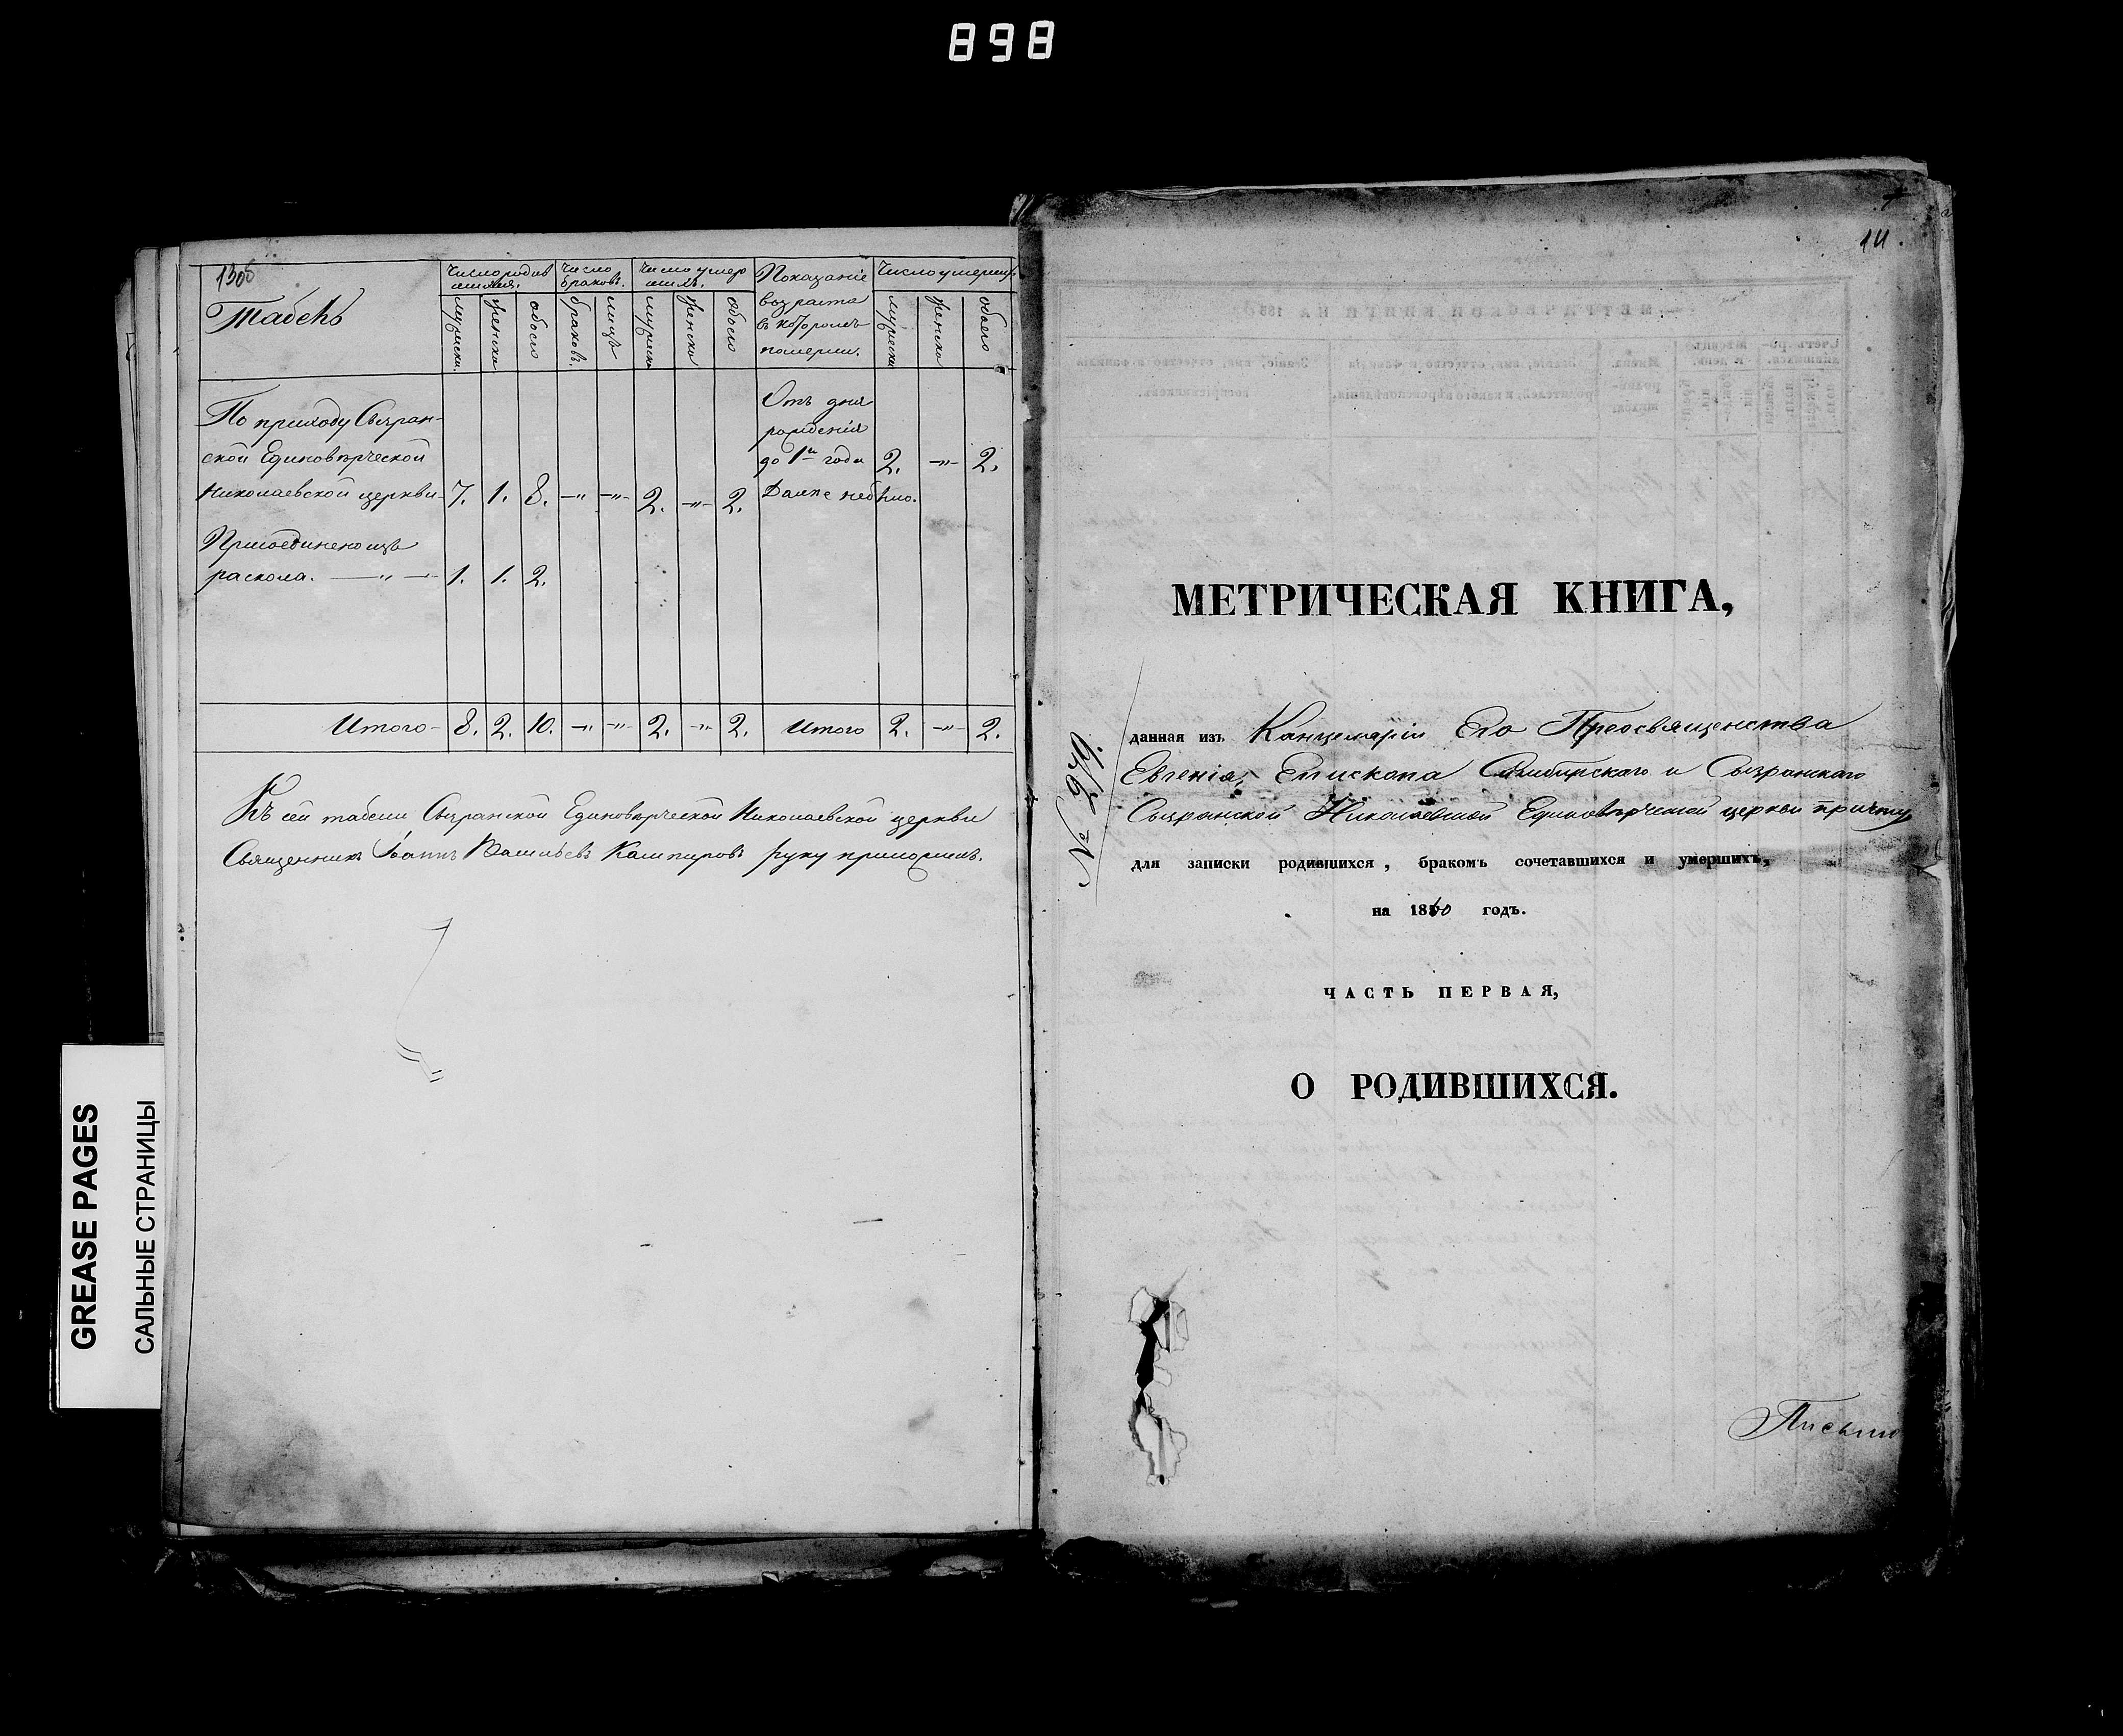 898
13об
Табель
Число родив
шихся.
мужеска
женска
обоего
Число
браковъ.
браковъ.
лицъ
Число умер
шихъ.
мужеска
женска
обоего
Показаніе
возраста
въ которомъ
померли.
Число умершихъ
мужеска
женска
обоего
По приходу Сызран-
ской Единоверческой
Николаевской церкви- 7. 1. 8. -"- -"- 2. -"- 2.
Отъ дня
рожденія
до 1го года 2. -"- 2.
Далее небыло.
Присоединено изъ
раскола. —"— 1. 1. 2.
Итого- 8. 2. 10. -"- -"- 2. -"- 2. Итого 2. -"- 2.
Къ сей табели Сызранской Единоверческой Николаевской церкви
Священникъ Іоаннъ Васильевъ Кашпировъ руку приложилъ.
GREASE PAGES
САЛЬНЫЕ СТРАНИЦЫ
14.
МЕТРИЧЕСКАЯ КНИГА,
№ 279.
данная изъ Канцеляріи Его Преосвященства
Евгенія, Епископа Симбирскаго и Сызранскаго
Сызранской Николаевской Единоверческой церкви причту
для записки родившихся, бракомъ сочетавшихся и умершихъ,
на 1860 годъ.
ЧАСТЬ ПЕРВАЯ,
О РОДИВШИХСЯ.